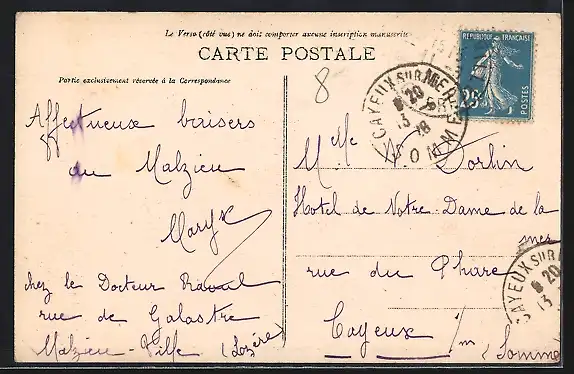 Le Verso (côté vue) ne doit comporter aucune inscription manuscrite
CARTE POSTALE
Partie exclusivement réservée à la Correspondance
8
Affectueux baisers
du Malzieu
chez le Docteur
rue de Galastre
Malzieu-Ville (Lozère)
RÉPUBLIQUE FRANÇAISE
25
POSTES
CAYEUX SUR MER
20
13
SOMME
Melle Dorlin
Hotel de Notre Dame de la
mer
rue du Phare
Cayeux s/m
(Somme)
CAYEUX SUR
20
13